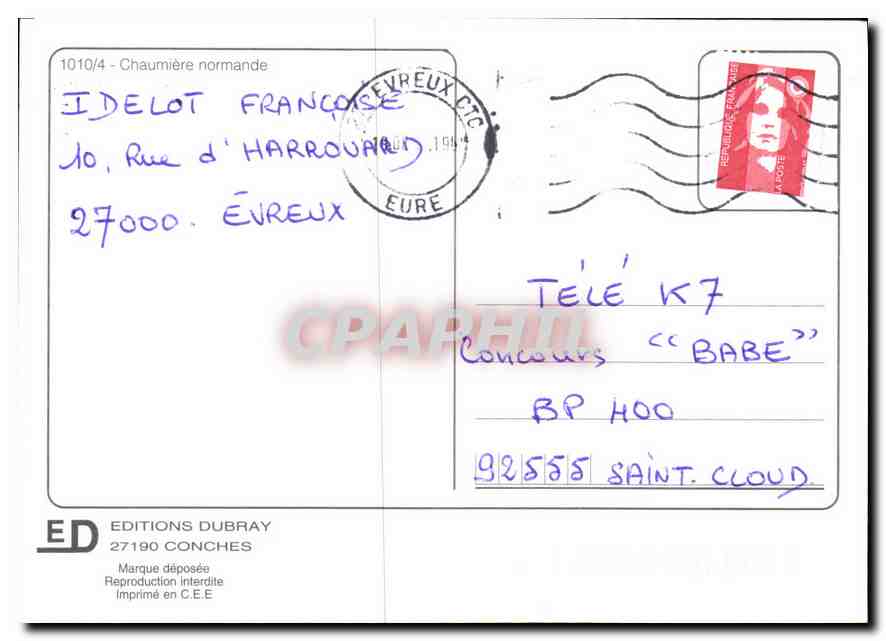 1010/4 - Chaumière normande
IDELOT FRANÇOISE
10, Rue d'HARROUARD
27000. ÉVREUX
EVREUX CTC
EURE
REPUBLIQUE FRANÇAISE
LA POSTE
TÉLÉ K7
Concours "BABE"
BP 400
92555 SAINT. CLOUD
CPAPHIL
ED
EDITIONS DUBRAY
27190 CONCHES
Marque déposée
Reproduction interdite
Imprimé en C.E.E